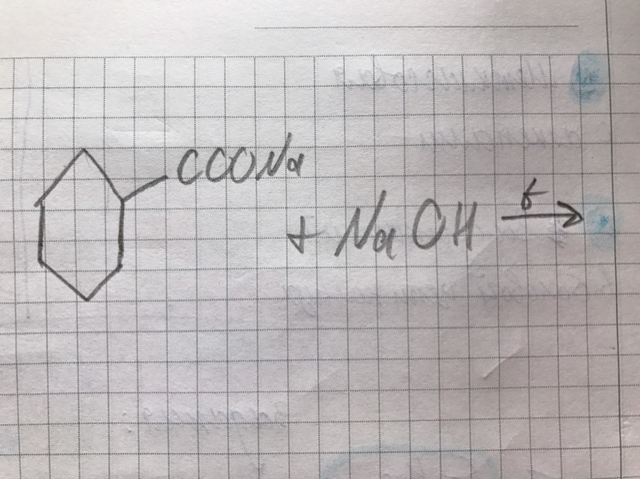 COONa
+ NaOH t